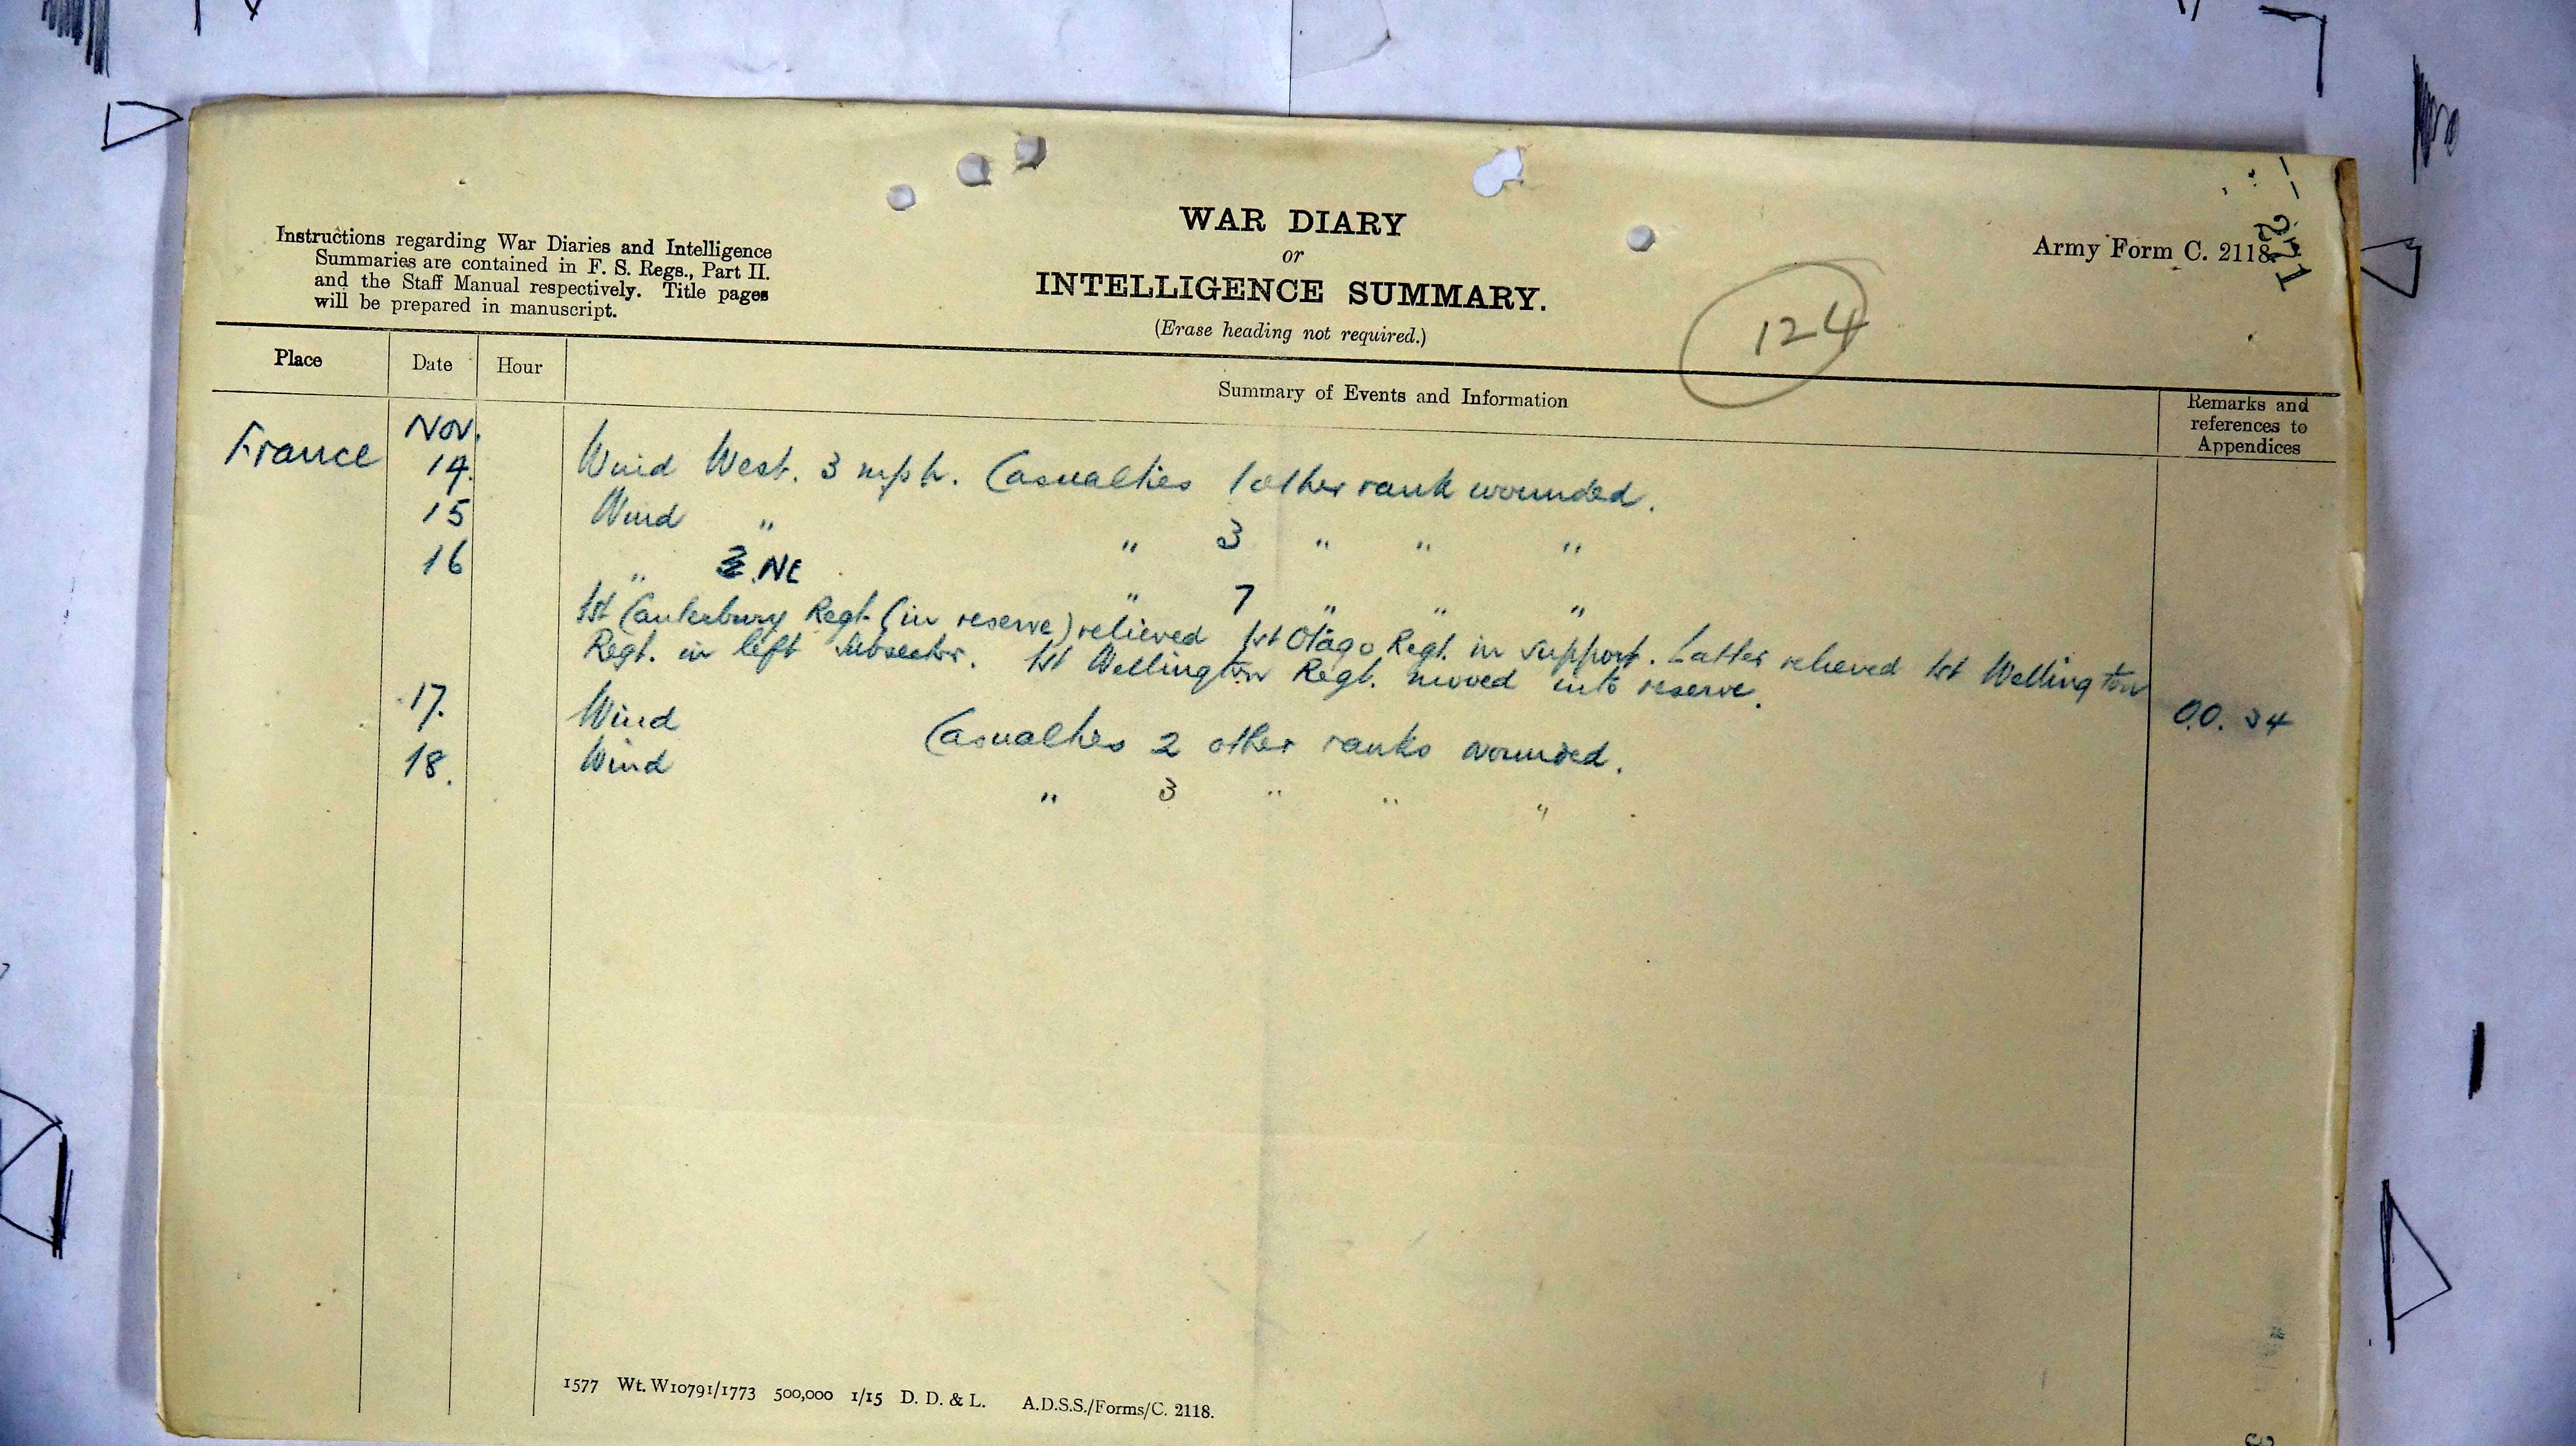 WAR DIARY
or
INTELLIGENCE SUMMARY.
(Erase heading not required.)
Instructions regarding War Diaries and Intelligence
Summaries are contained in F. S. Regs., Part II.
and the Staff Manual respectively. Title pages
will be prepared in manuscript.
Army Form C. 2118.
271
124
Place Date Hour Summary of Events and Information Remarks and references to Appendices
France Nov.
14. Wind West. 3 mph. Casualties 1 other rank wounded.
15 Wind " " 3 " " "
16 " NE " 7 " " "
1st Canterbury Regt. (in reserve) relieved 1st Otago Regt. in support. Latter relieved 1st Wellington
Regt. in left Subsector. 1st Wellington Regt. moved into reserve. O.O. 34
17. Wind Casualties 2 other ranks wounded.
18. Wind " 3 " " "
1577 Wt. W10791/1773 500,000 1/15 D. D. & L. A.D.S.S./Forms/C. 2118.